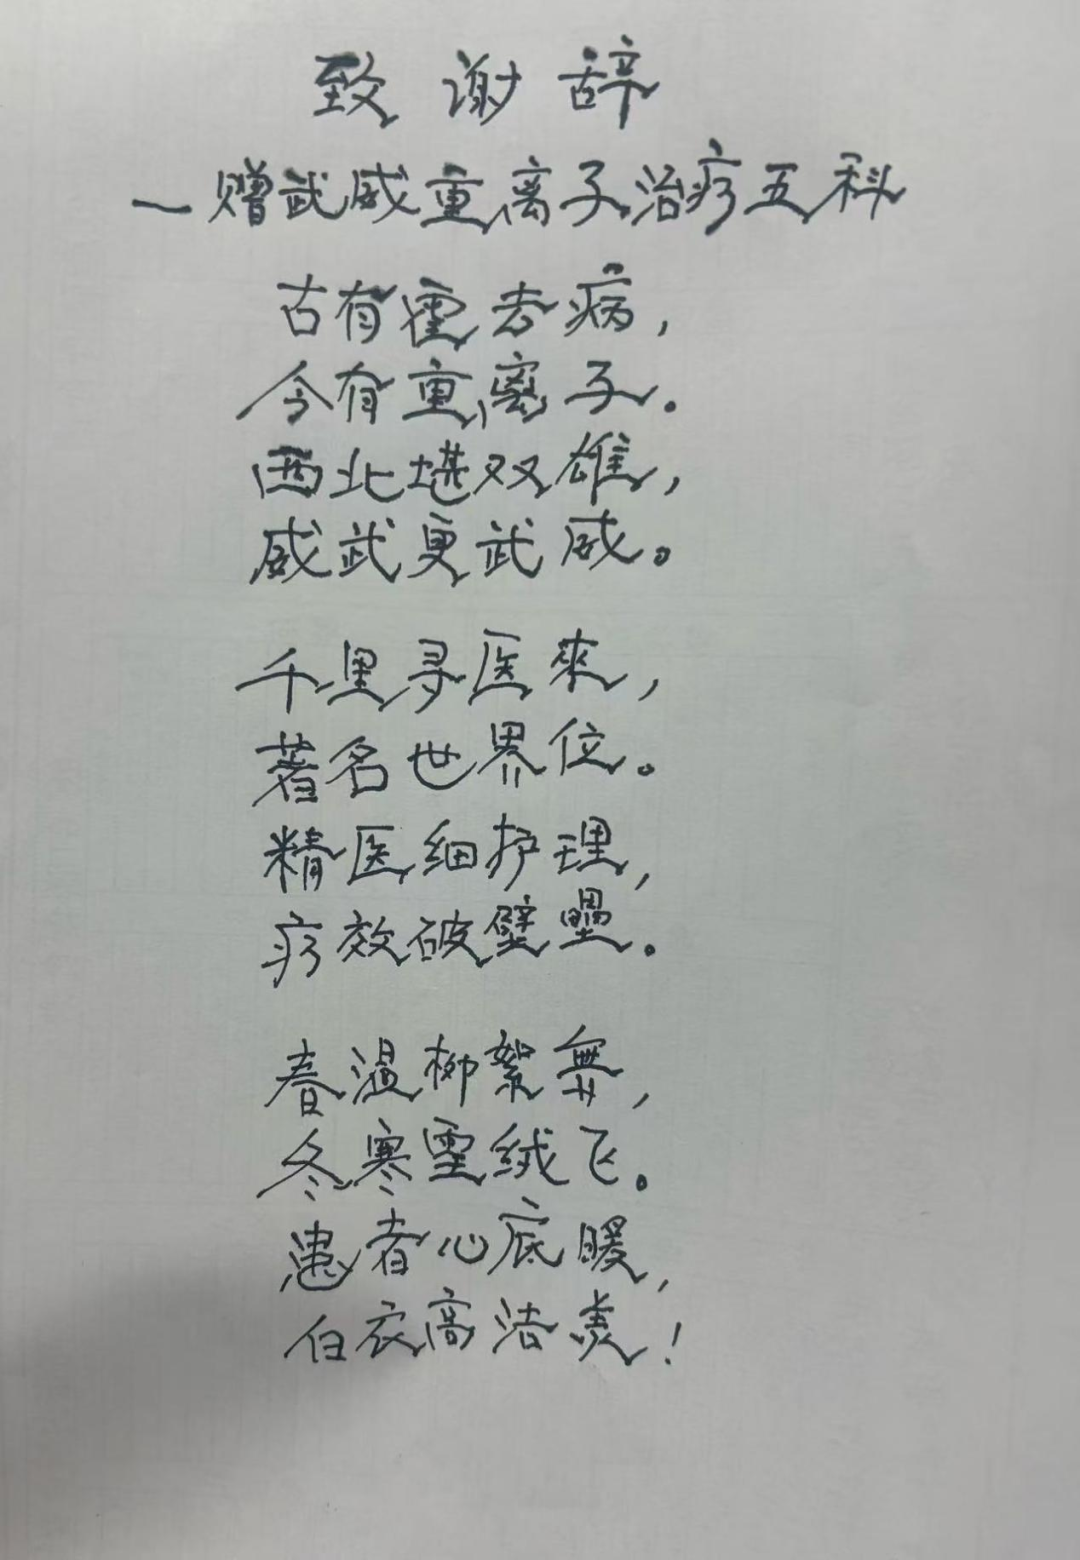 致谢辞
一赠武威重离子治疗五科
古有霍去病,
今有重离子.
西北堪双雄,
威武更武威。
千里寻医來,
著名世界位。
精医细护理,
疗效破壁壘.
春温柳絮舞,
冬寒雪绒飞。
患者心底暖,
白衣高洁美!